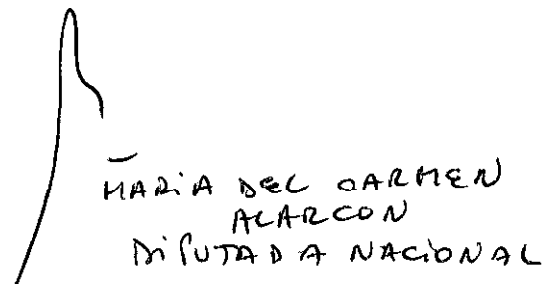 MARIA DEL CARMEN
ALARCON
DIPUTADA NACIONAL